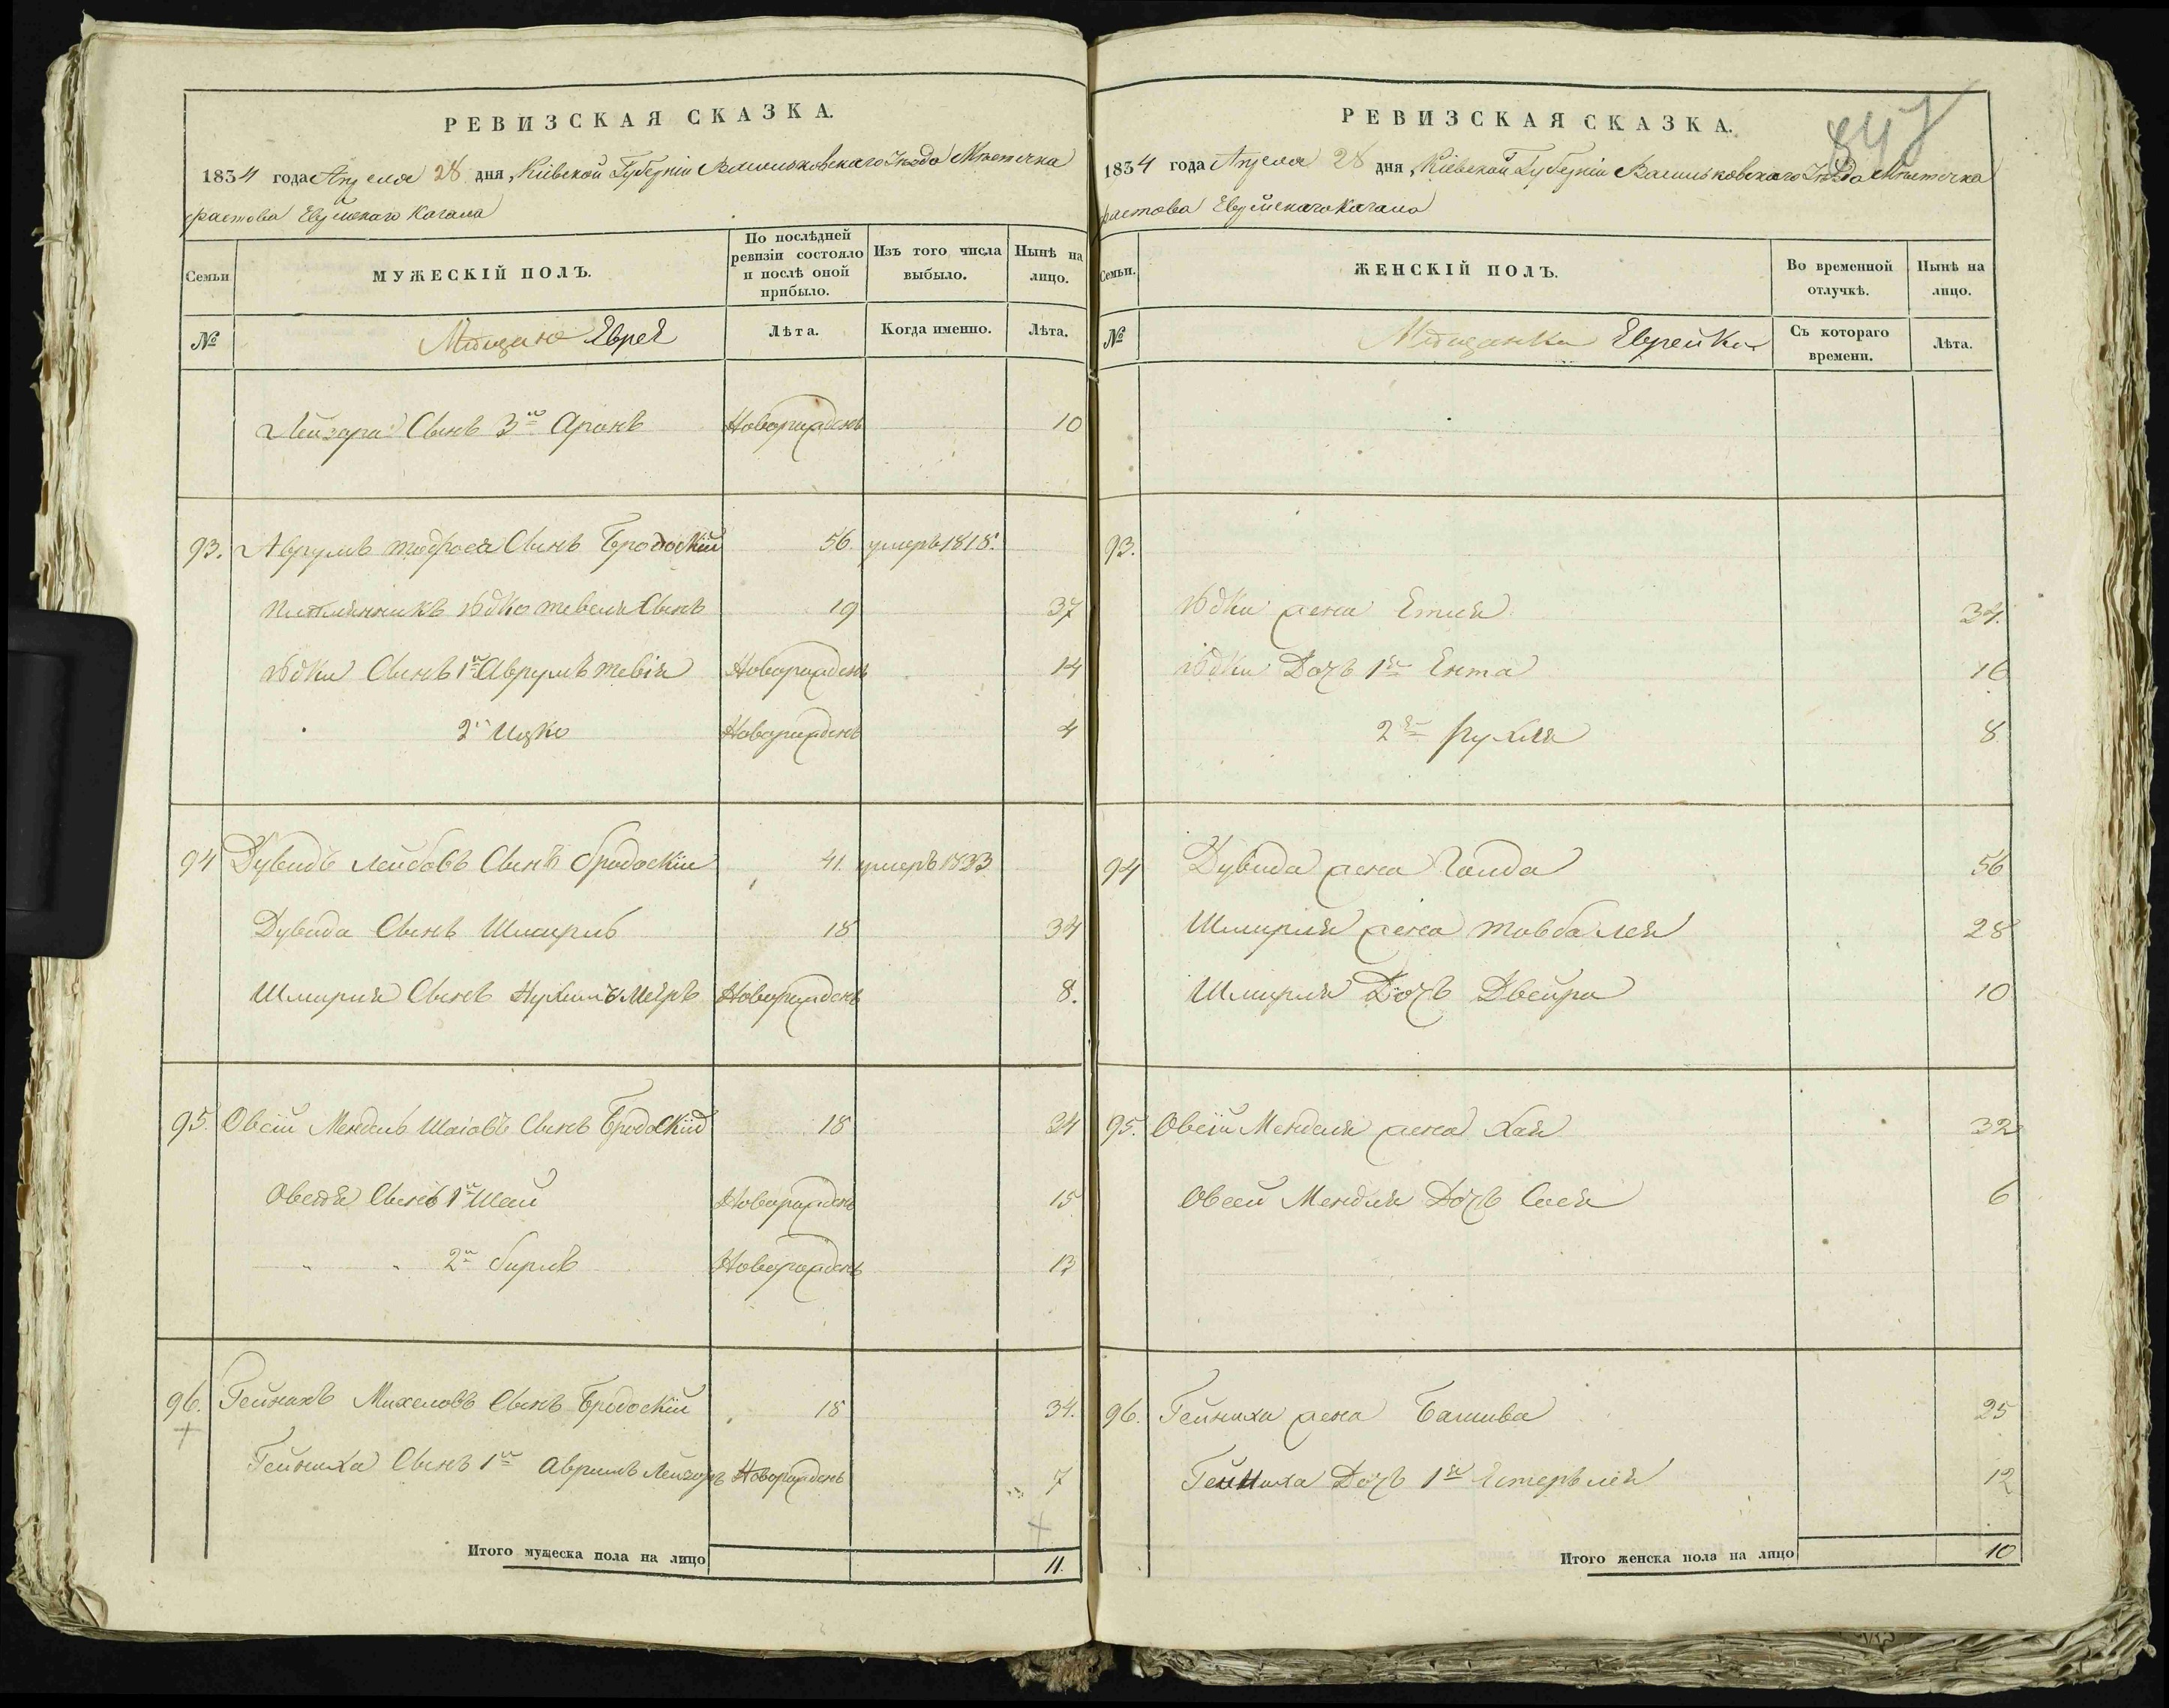 РЕВИЗСКАЯ СКАЗКА.
1834 года Апреля 28 дня, Кіевской Губерніи Васильковскаго Уезда Местечка
Фастова Еврейскаго Кагала
Семьи
МУЖЕСКІЙ ПОЛЪ.
По послѣдней ревизіи состояло и послѣ оной прибыло.
Изъ того числа выбыло.
Нынѣ на лицо.
№
Мещане Евреи
Лѣта.
Когда именно.
Лѣта.
Лейзора Сынъ 3й Аронъ Новорожденъ 10
93. Аврумъ Тодроса Сынъ Бродоскій 56 умеръ 1818.
Племянникъ Юдко Тевеля Сынъ 19 37
Юдки Сынъ 1й Аврумъ Тевія Новорожденъ 14
2й Ицко Новорожденъ 4
94 Дувидъ Лейбовъ Сынъ Бродоскій 41. умеръ 1833
Дувида Сынъ Шмирль 18 34
Шмирля Сынъ Нухимъ Меиръ Новорожденъ 8.
95. Овсій Мендель Шаіовъ Сынъ Бродоскій 18 34
Овсія Сынъ 1й Шай Новорожденъ 15
" " 2й Бирлъ Новорожденъ 13
96. Гейнахъ Михеловъ Сынъ Бродоскій 18 34.
Гейниха Сынъ 1й Аврумъ Лейзоръ Новорожденъ 7
Итого мужеска пола на лицо 11.
847
РЕВИЗСКАЯ СКАЗКА.
1834 года Апреля 28 дня, Кіевской Губерніи Васильковскаго Уезда Местечка
Фастова Еврейскаго Кагала
Семьи.
ЖЕНСКІЙ ПОЛЪ.
Во временной отлучкѣ.
Нынѣ на лицо.
№
Мещанки Еврейки
Съ котораго времени.
Лѣта.
93.
Юдки жена Етля 34.
Юдки Дочь 1я Ента 16
2я Рухля 8
94 Дувида жена Голда 56
Шмирля жена Товба Лея 28
Шмирля Дочь Двейра 10
95. Овсій Менделя жена Хая 32
Овсей Менделя Дочь Сося 6
96. Гейниха жена Башива 25
Гейниха Дочь 1я Естеръ Лея 12
Итого женска пола на лицо 10